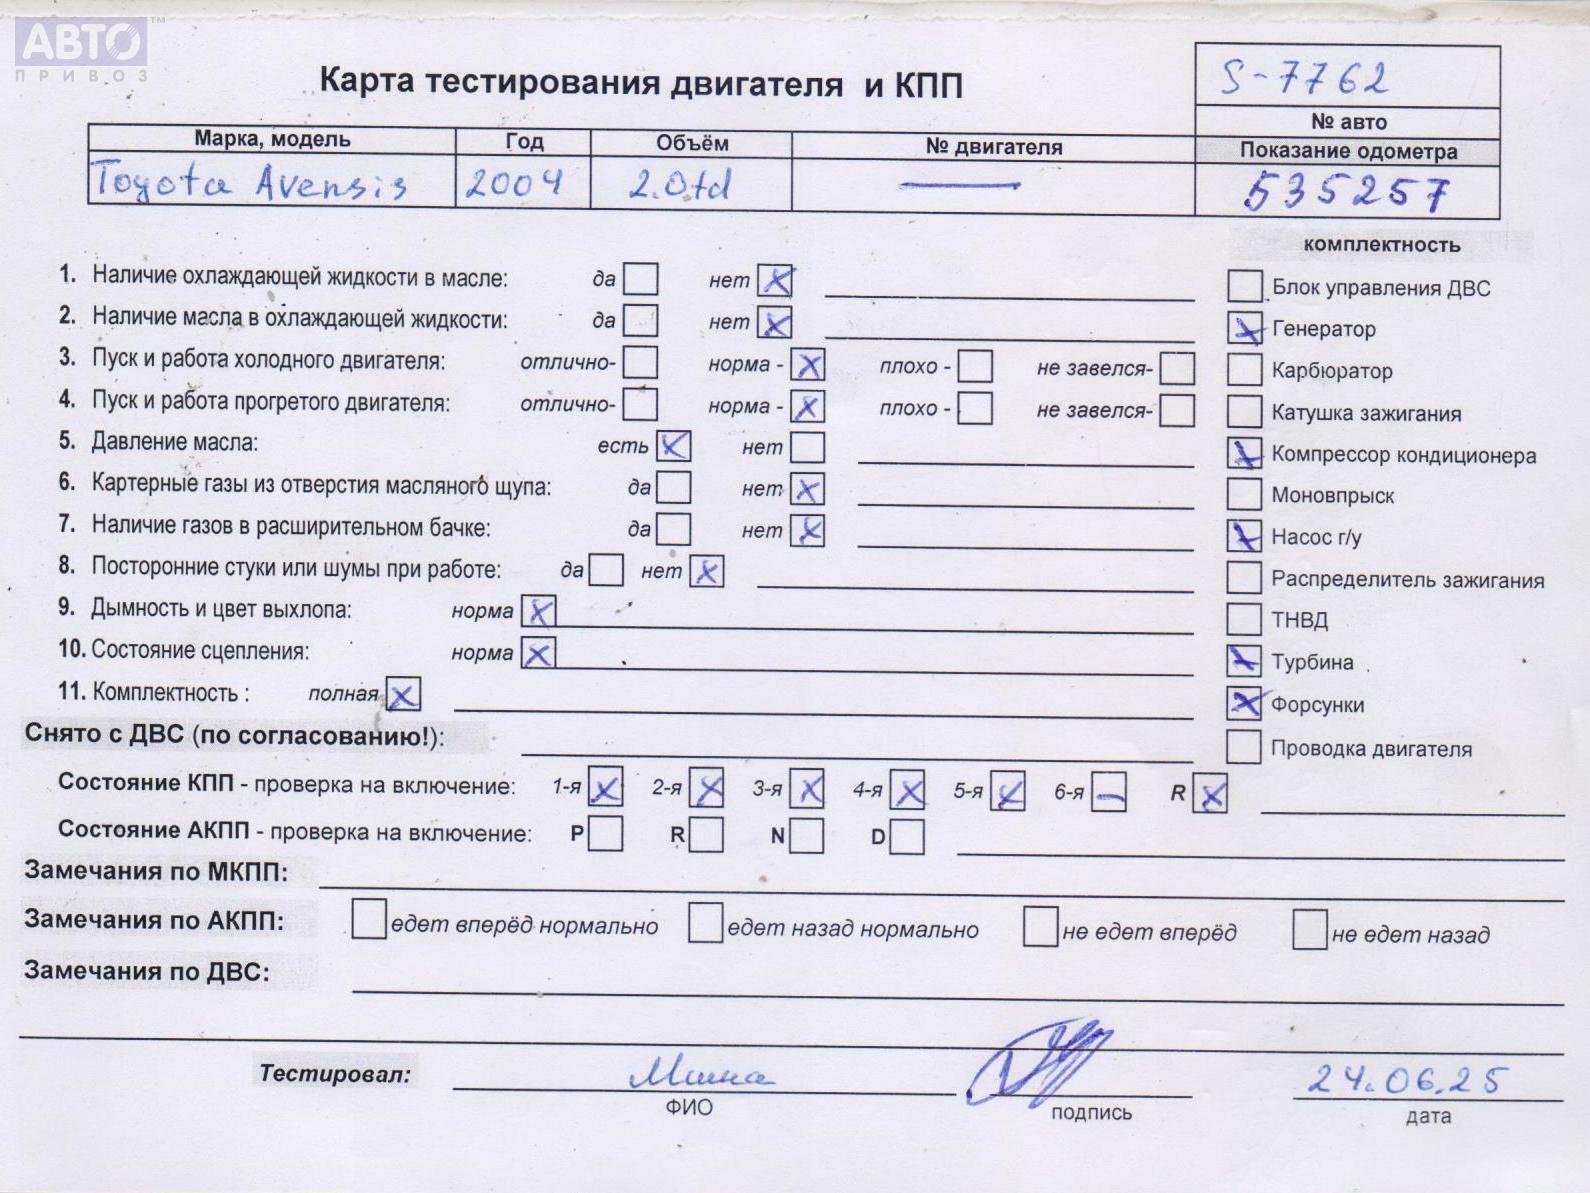 АВТО™
ПРИВОЗ
Карта тестирования двигателя и КПП
S-7762
№ авто
Марка, модель Год Объём № двигателя Показание одометра
Toyota Avensis 2004 2.0td — 535257
комплектность
1. Наличие охлаждающей жидкости в масле: да нет X
Блок управления ДВС
2. Наличие масла в охлаждающей жидкости: да нет X
X Генератор
3. Пуск и работа холодного двигателя: отлично- норма - X плохо - не завелся-
Карбюратор
4. Пуск и работа прогретого двигателя: отлично- норма - X плохо - не завелся-
Катушка зажигания
5. Давление масла: есть X нет
X Компрессор кондиционера
6. Картерные газы из отверстия масляного щупа: да нет X
Моновпрыск
7. Наличие газов в расширительном бачке: да нет X
X Насос г/у
8. Посторонние стуки или шумы при работе: да нет X
Распределитель зажигания
9. Дымность и цвет выхлопа: норма X
ТНВД
10. Состояние сцепления: норма X
X Турбина
11. Комплектность : полная X
X Форсунки
Снято с ДВС (по согласованию!):
Проводка двигателя
Состояние КПП - проверка на включение: 1-я X 2-я X 3-я X 4-я X 5-я X 6-я — R X
Состояние АКПП - проверка на включение: P R N D
Замечания по МКПП:
Замечания по АКПП: едет вперёд нормально едет назад нормально не едет вперёд не едет назад
Замечания по ДВС:
Тестировал: 24.06.25
ФИО подпись дата